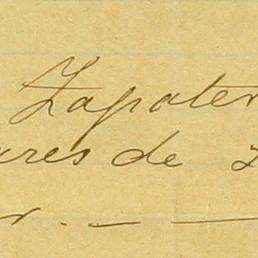 Zapater
ares de
r. — —